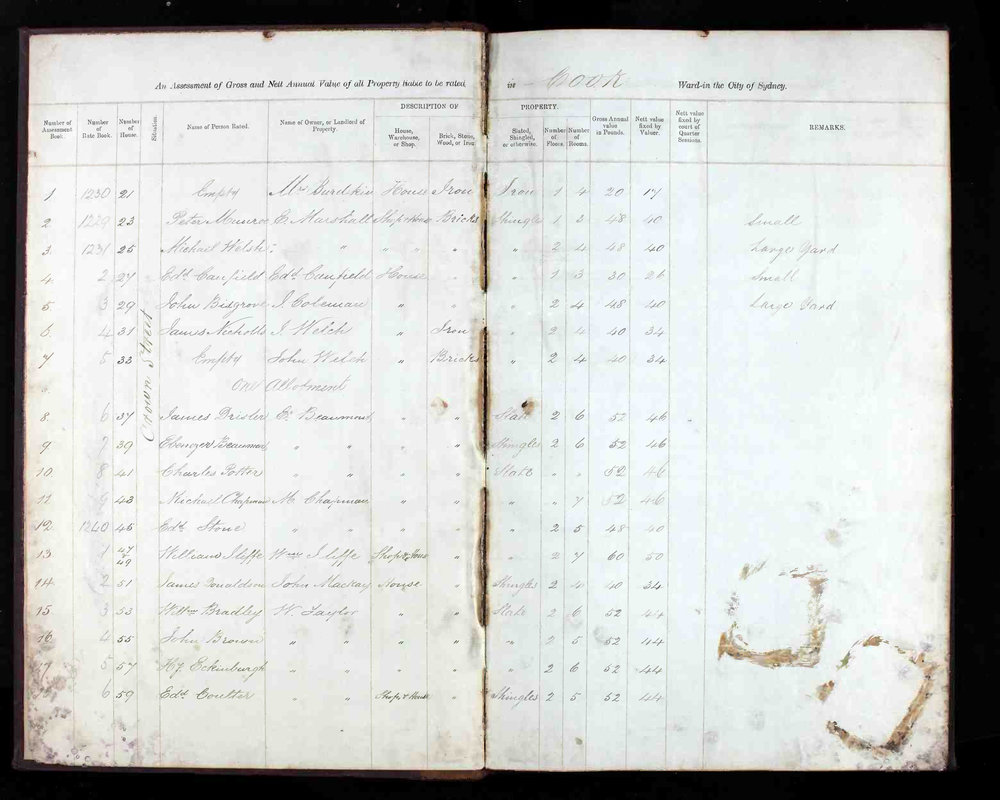 An Assessment of Gross and Nett Annual Value of all Property liable to be rated in Cook Ward in the City of Sydney.
DESCRIPTION OF PROPERTY.
Number of Assessment Book. Number of Rate Book. Number of House. Situation. Name of Person Rated. Name of Owner, or Landlord of Property. House, Warehouse, or Shop. Brick, Stone, Wood, or Iron Slated, Shingled, or otherwise. Number of Floors. Number of Rooms. Gross Annual value in Pounds. Nett value fixed by Valuer. Nett value fixed by court of Quarter Sessions. REMARKS.
Crown Street
1 1230 21 Empty Mrs Burdkin House Iron Iron 1 4 20 17
2 1229 23 Peter Munroe E. Marshall Shop & House Bricks Shingle 1 2 48 40 Small
3 1231 25 Michael Welsh " " " " " " 2 4 48 40 Large Yard
4 2 27 Edd Canfield Edd Canfield House " " 1 3 30 26 Small
5 3 29 John Bisgrove J. Coleman " " " 2 4 48 40 Large Yard
6 4 31 James Nicholls J. Welch " Iron " 2 4 40 34
7 5 33 Empty John Welch " Bricks " 2 4 40 34
One Allotment
8 6 37 James E. Beaumond " " Slate 2 6 52 46
9 7 39 Ebenezer Beaumond " " " " Shingles 2 6 52 46
10 8 41 Charles Potter " " " " Slate " " 52 46
11 9 43 Michael Chapman M. Chapman " " " " 7 52 46
12 1240 45 Edd Stone " " " " " 2 5 48 40
13 1 47 & 49 William Iliffe Wm Iliffe Shop & House " " 2 7 60 50
14 2 51 James Donaldson John Mackay House " Shingles 2 4 40 34
15 3 53 Willm Bradley W. Taylor " " Slate 2 6 52 44
16 4 55 John Brown " " " " " 2 5 52 44
17 5 57 Hy Eckinburgh " " " " " 2 6 52 44
6 59 Edd Coulter " " Shop & House " Shingles 2 5 52 44